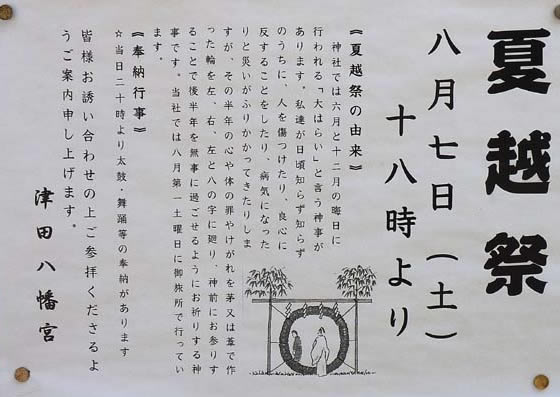 夏越祭
八月七日（土）
十八時より
《夏越祭の由来》
神社では六月と十二月の晦日に
行われる「大はらい」と言う神事が
あります。私達が日頃知らず知らず
のうちに、人を傷つけたり、良心に
反することをしたり、病気になった
りと災いがふりかかってきたりしま
すが、その半年の心や体の罪やけがれを茅又は葦で作
った輪を左、右、左と八の字に廻り、神前にお参りす
ることで後半年を無事に過ごせるようにお祈りする神
事です。当社では八月第一土曜日に御旅所で行ってい
ます。
《奉納行事》
☆当日二十時より太鼓・舞踊等の奉納があります
皆様お誘い合わせの上ご参拝くださるよ
うご案内申し上げます。
津田八幡宮